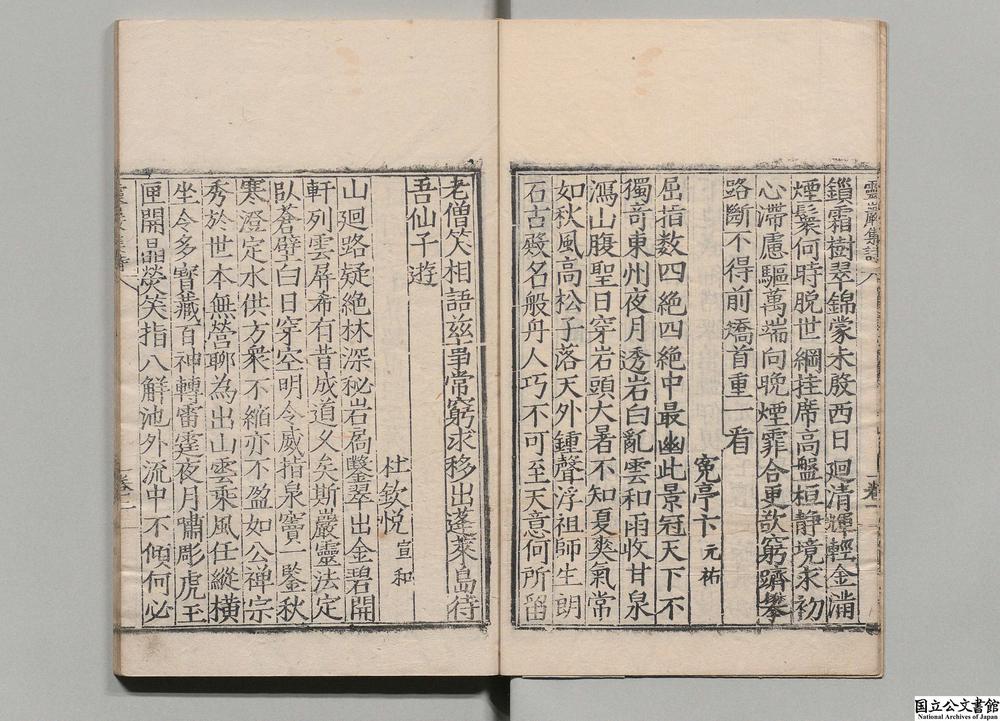 靈巖集詩 卷一
鎖霜樹翠錦蒙未殷西日廻清輝輕金滿
煙鬟何時脫世網挂席高盤桓静境求初
心滯慮驅萬端向晚煙霏合更欲窮躋攀
路斷不得前矯首重一看
亭卞 元祐
屈指数四絶四絶中最幽此景冠天下不
獨竒東州夜月透岩白亂雲和雨收甘泉
瀉山腹聖日穿岩頭大暑不知夏爽氣常
如秋風高松子落天外鍾聲浮祖師生朗
石古殿名般舟人巧不可至天意何所留
老僧笑相語兹事常窮求移出蓬萊島待
吾仙子遊
杜欽悦 宣和
山廻路疑絶林深秘岩扄鑿翠出金碧開
軒列雲屏希有昔成道久矣斯巖靈法定
臥蒼壁白日穿空明令威指泉竇一鑒秋
寒澄定水供方衆不縮亦不盈如公禅宗
秀於世本無營聊為出山雲乘風任縱横
坐令多寳藏百神轉雷霆夜月嘯彫虎玉
匣開晶熒笑指八解池外流中不傾何必